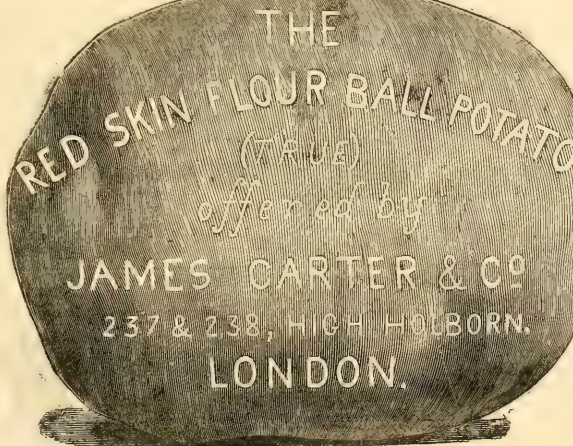 THE
RED SKIN FLOUR BALL POTATO
(TRUE)
offered by
JAMES CARTER & Co
237 & 238, HIGH HOLBORN,
LONDON.